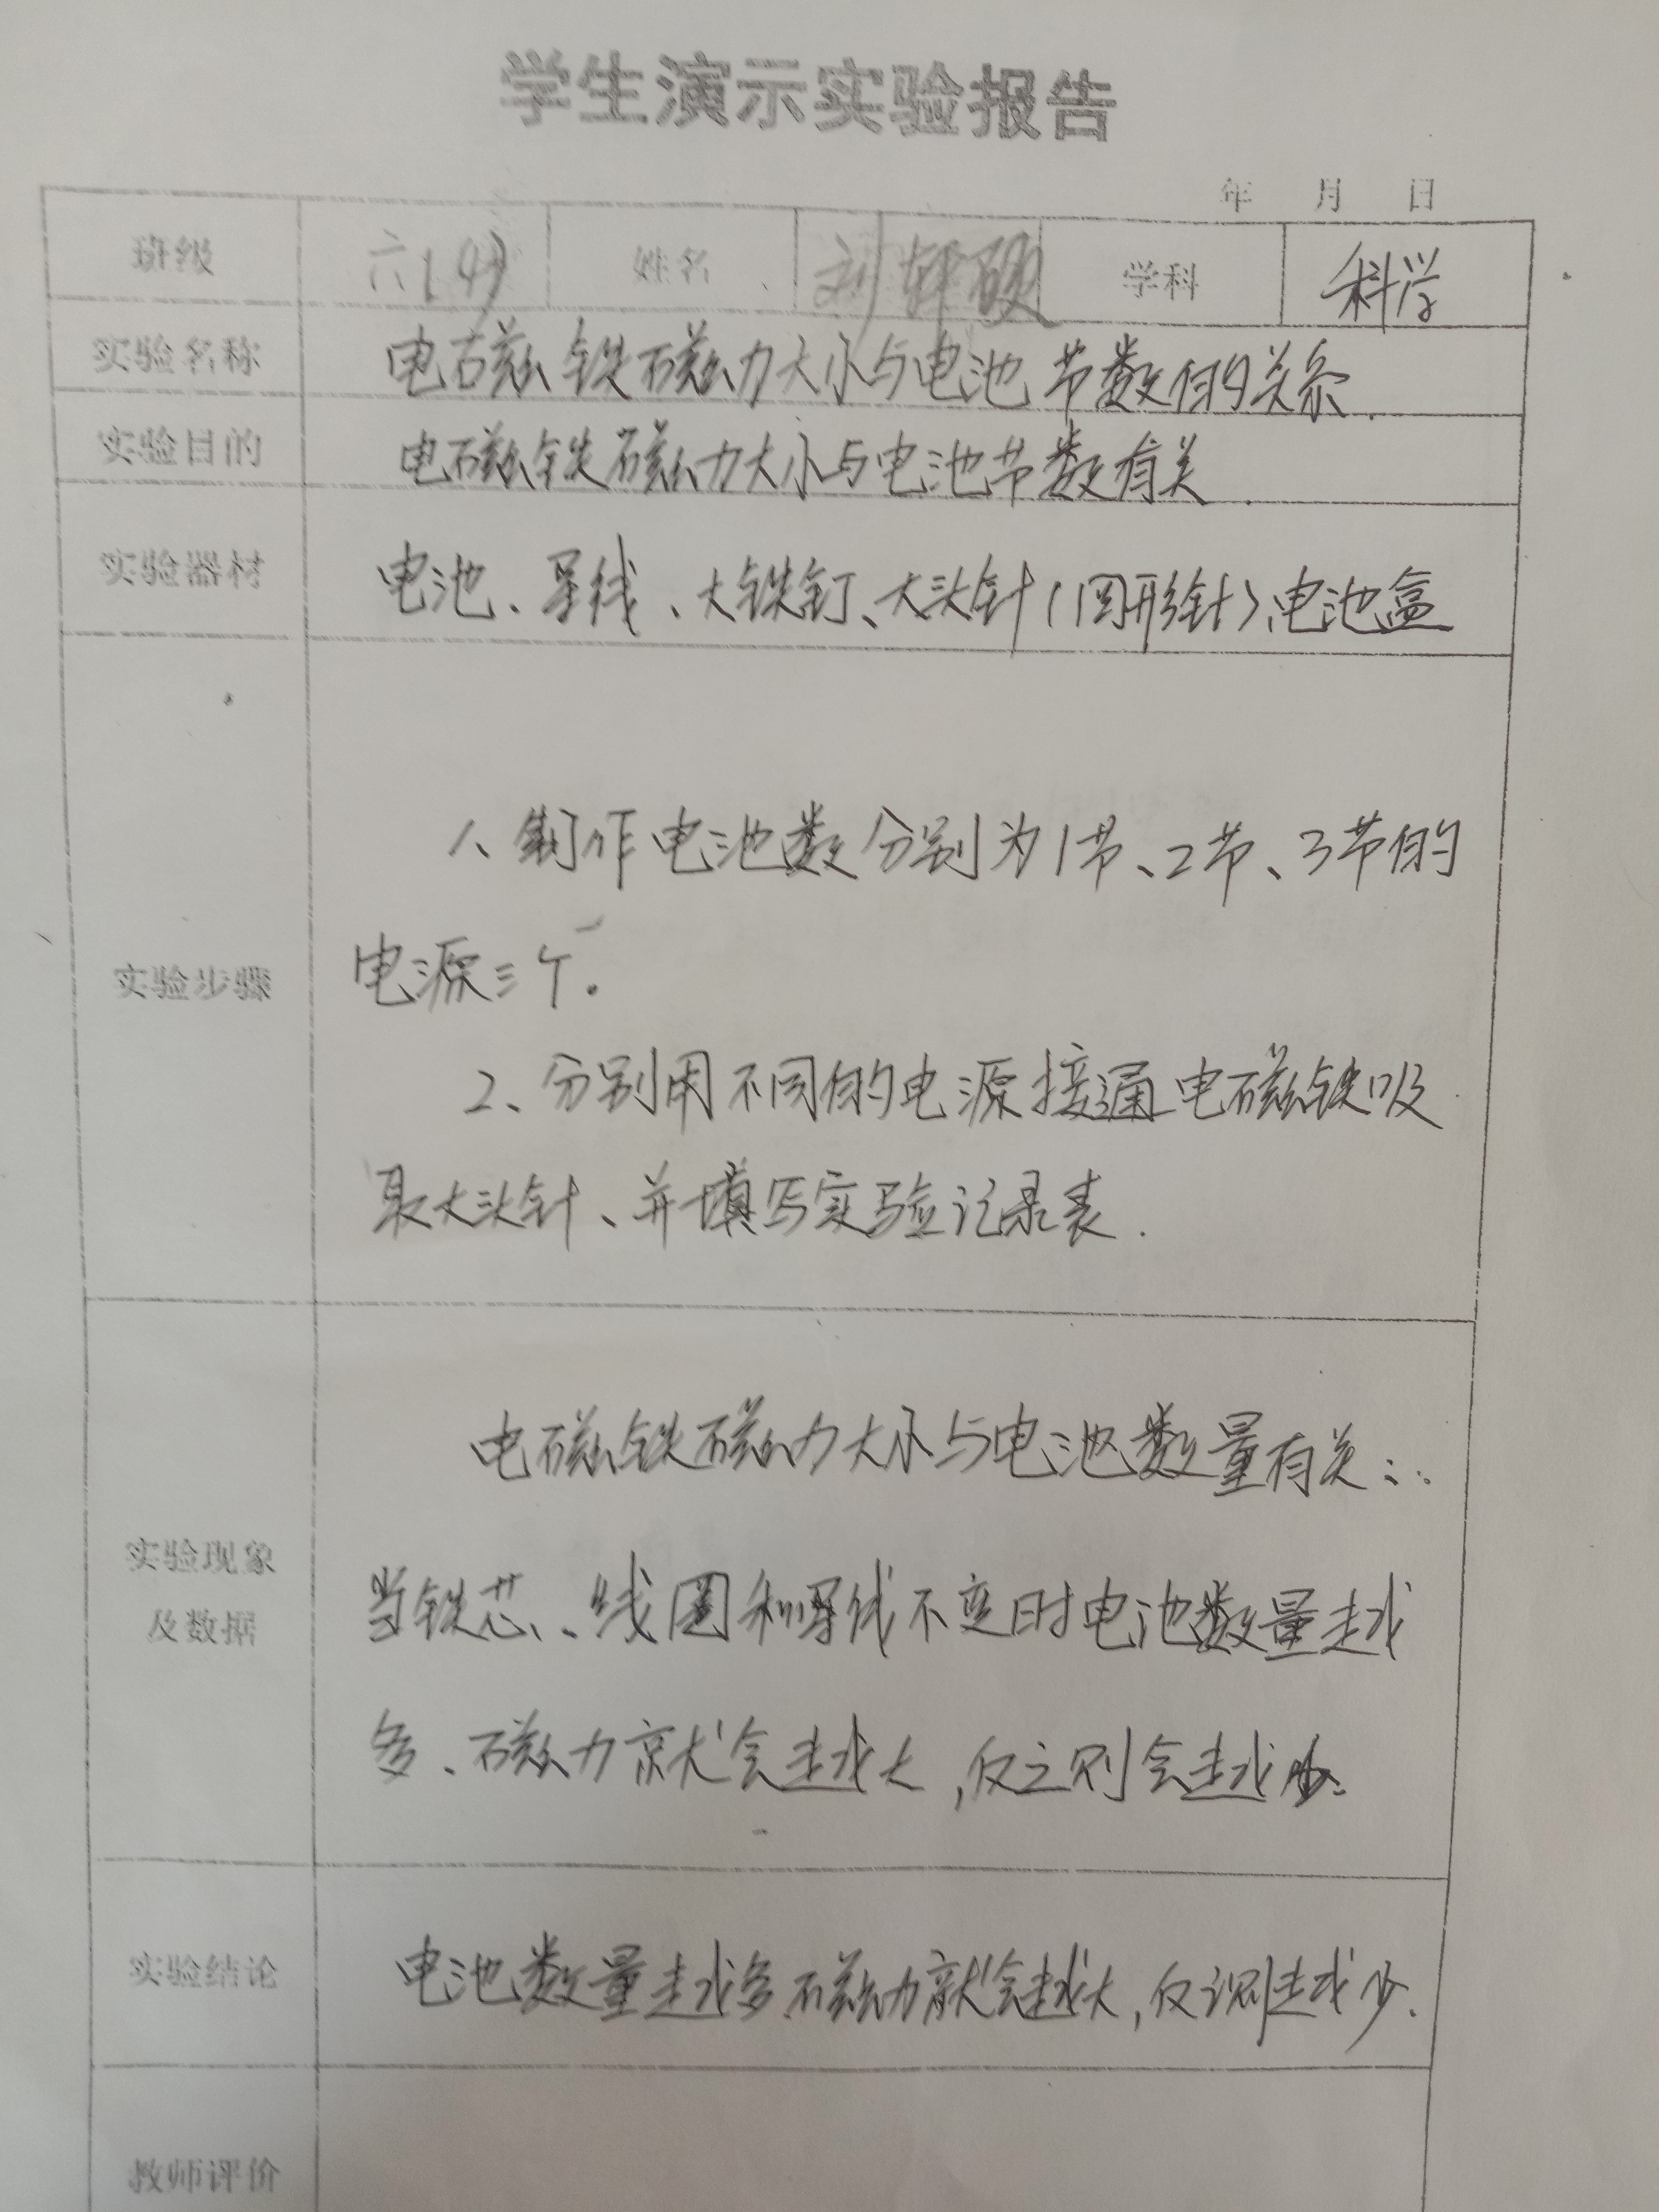 学生演示实验报告
年 月 日
班级 六(4) 姓名 刘轩硕 学科 科学
实验名称 电磁铁磁力大小与电池节数的关系.
实验目的 电磁铁磁力大小与电池节数有关.
实验器材 电池、导线、大铁钉、大头针(回形针)、电池盒
1、制作电池数分别为1节、2节、3节的
实验步骤 电源三个.
2、分别用不同的电源接通电磁铁吸
取大头针、并填写实验记录表.
电磁铁磁力大小与电池数量有关:
实验现象
及数据
当铁芯、线圈和导线不变时电池数量越
多、磁力就会越大,反之则会越小.
实验结论 电池数量越多、磁力就会越大,反之则越少.
教师评价